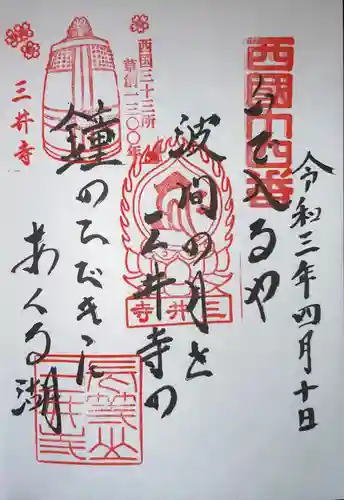 令和三年四月十日
西國十四番
いで入るや
波間の月を
三井寺の
鐘のひびきに
あくる湖
西国三十三所
草創一三〇〇年
三井寺
三井寺